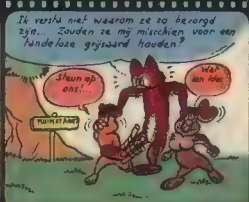 Ik versta niet waarom ze zo bezorgd
zijn... Zouden ze mij misschien voor een
tandeloze grijsaard houden?
Steun op
ons!...
Wat
een idee